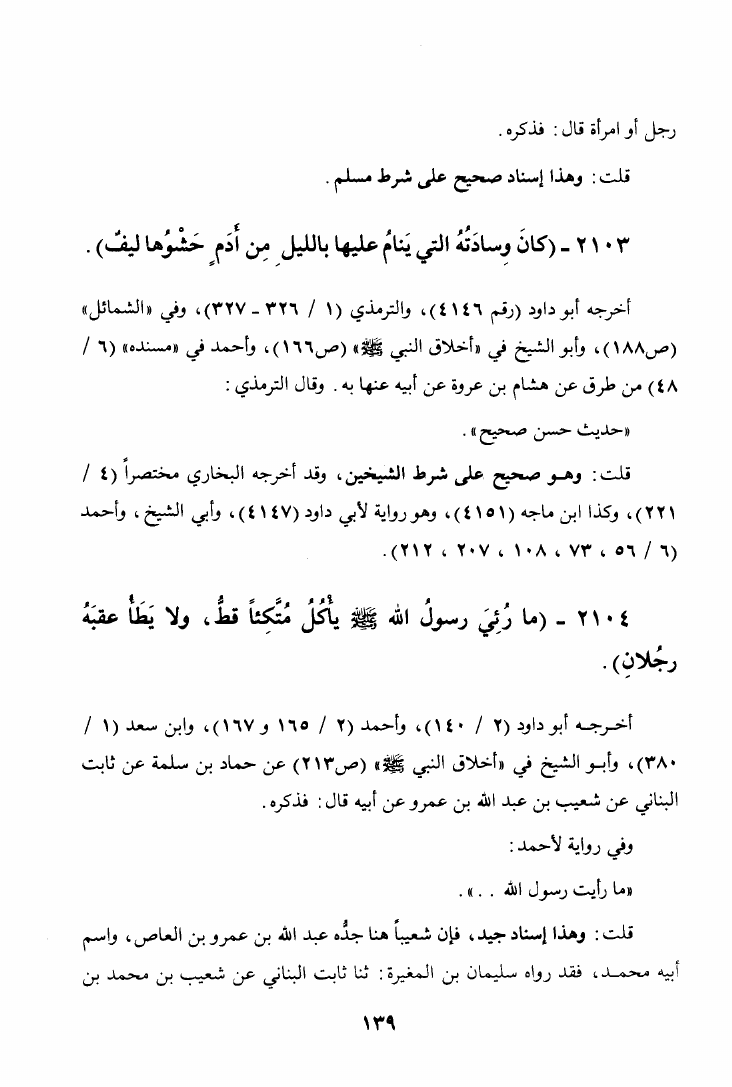 رجل أو امرأة قال: فذكره.
قلت: وهذا إسناد صحيح على شرط مسلم.
٢١٠٣ ـ (كانَ وِسادَتُهُ التي يَنامُ عليها بالليلِ مِن أَدَمٍ حَشْوُها ليفٌ).
أخرجه أبو داود (رقم ٤١٤٦)، والترمذي (١ / ٣٢٦ ـ ٣٢٧)، وفي «الشمائل»
(ص١٨٨)، وأبو الشيخ في «أخلاق النبي ﷺ» (ص١٦٦)، وأحمد في «مسنده» (٦ /
٤٨) من طرق عن هشام بن عروة عن أبيه عنها به. وقال الترمذي:
«حديث حسن صحيح».
قلت: وهـو صحيح على شرط الشيخين، وقد أخرجه البخاري مختصراً (٤ /
٢٢١)، وكذا ابن ماجه (٤١٥١)، وهو رواية لأبي داود (٤١٤٧)، وأبي الشيخ، وأحمد
(٦ / ٥٦ ، ٧٣ ، ١٠٨ ، ٢٠٧ ، ٢١٢).
٢١٠٤ ـ (ما رُئِيَ رسولُ الله ﷺ يأْكُلُ مُتَّكِئاً قطُّ، ولا يَطَأُ عقبَهُ
رجُلانِ).
أخـرجـه أبو داود (٢ / ١٤٠)، وأحمد (٢ / ١٦٥ و ١٦٧)، وابن سعد (١ /
٣٨٠)، وأبـو الشيخ في «أخلاق النبي ﷺ» (ص٢١٣) عن حماد بن سلمة عن ثابت
البناني عن شعيب بن عبد الله بن عمرو عن أبيه قال: فذكره.
وفي رواية لأحمد:
«ما رأيت رسول الله . .».
قلت: وهذا إسناد جيد، فإن شعيباً هنا جدُّه عبد الله بن عمرو بن العاص، واسم
أبيه محمـد، فقد رواه سليمان بن المغيرة: ثنا ثابت البناني عن شعيب بن محمد بن
١٣٩